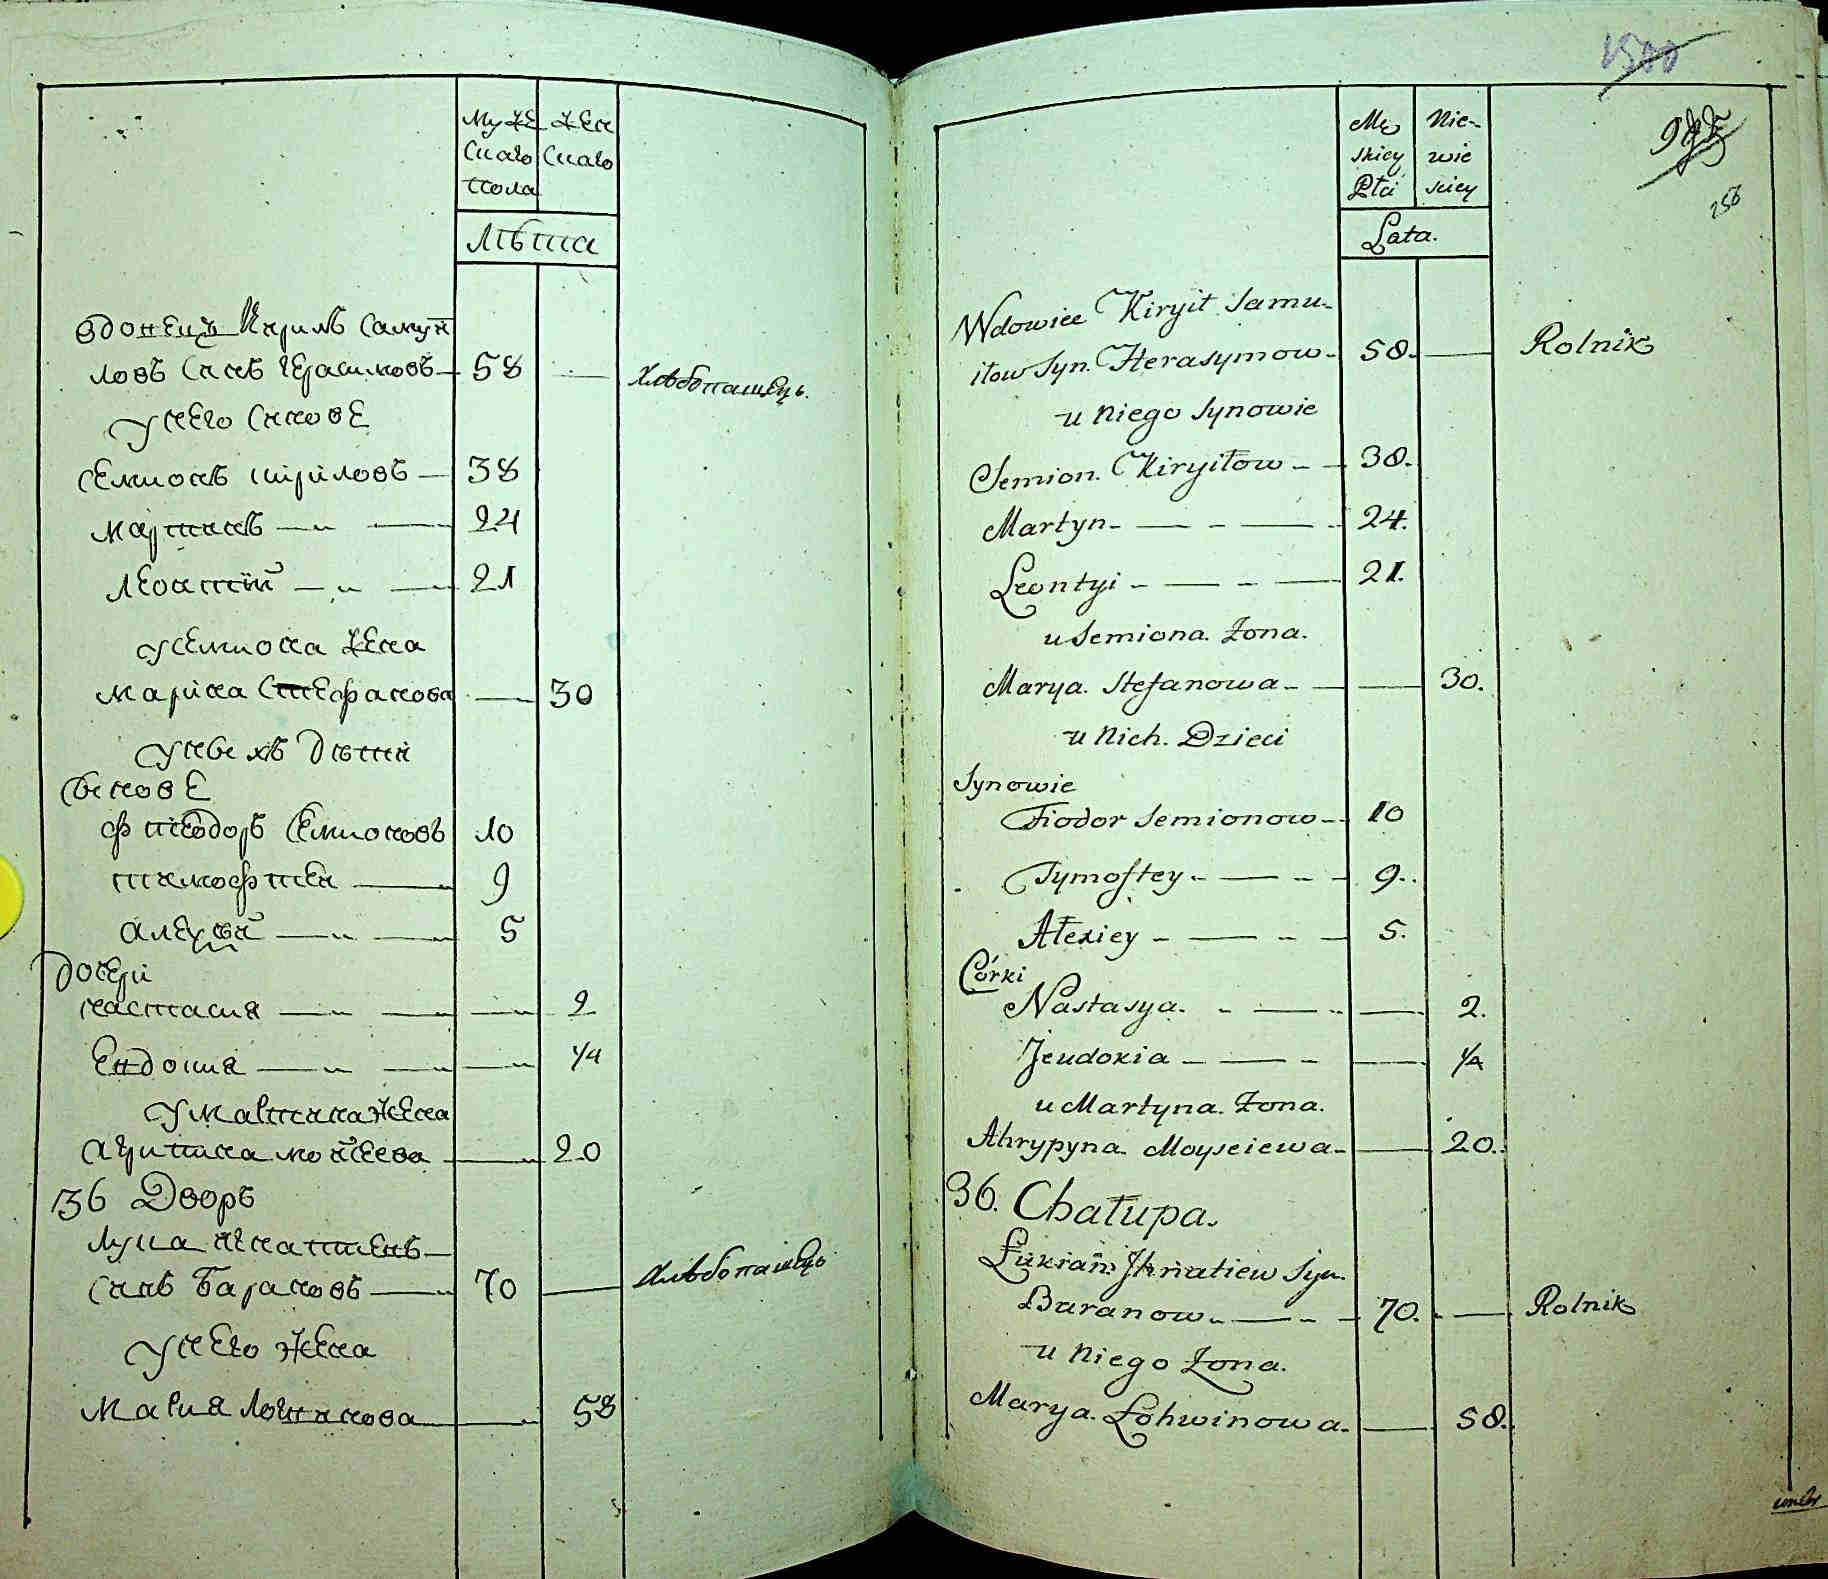 Муже
скаго
пола
Жен
скаго
Лѣта
Вдонецъ Кирилъ Самуй
ловъ Синъ Герасимовъ 58 Хлѣбопашецъ.
у него Синове
Семионъ Кириловъ 38
Мартинъ 24
Леонтій 21
у Семиона Жена
Марина Стефанова 30
у нихъ Дѣти
Синове
Фтеодоръ Семионовъ 10
Тимофтей 9
Алексей 5
Дочери
Настасия 2
Евдокия 1/4
у Мартина Жена
Агрипина Мойсеева 20
36 Дворъ
Лукиа Игнатиевъ
Синъ Барановъ 70 Хлѣбопашецъ
у него Жена
Мария Логвинова 58
1500
258
Mę
skiey
Płci
Nie-
wie
sciey
Lata.
Wdowiec Kiryił Samu-
iłow Syn Herasymow 58. Rolnik
u niego Synowie
Semion Kiryiłow 38.
Martyn 24.
Leontyi 21.
u Semiona Żona.
Marya Stefanowa 30.
u nich Dzieci
Synowie
Fiodor Semionow 10
Tymoftey 9.
Ałexiey 5.
Córki
Nastasya. 2.
Jeudokia 1/4
u Martyna Żona.
Ahrypyna Moyseiewa 20.
36. Chałupa.
Łukian Jhnatiew Syn.
Baranow 70. Rolnik
u niego Żona.
Marya Łohwinowa 58.